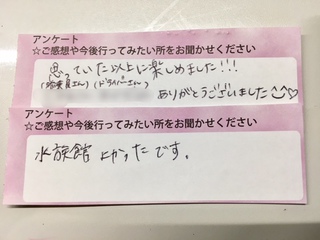 アンケート
☆ご感想や今後行ってみたい所をお聞かせください
思っていた以上に楽しめました!!!
(添乗員さん)(ドライバーさん)
ありがとうございました
アンケート
☆ご感想や今後行ってみたい所をお聞かせください
水族館よかったです。